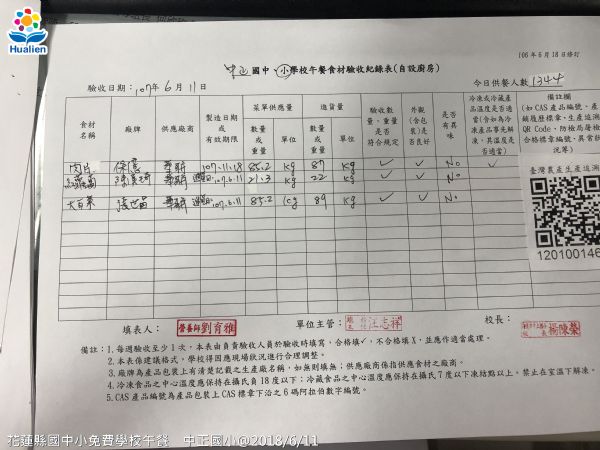 Hualien
106年6月18日修訂
中正國中、小學校午餐食材驗收紀錄表(自設廚房)
驗收日期：107年6月11日
今日供餐人數1344
食材名稱 廠牌 供應廠商 製造日期或有效期限 菜單供應量 進貨量 驗收數量、重量是否符合規定 外觀(包裝)是否良好 是否有異味 冷凍或冷藏產品溫度是否適當(含如為冷凍產品事先解凍，其溫度是否適當) 備註欄
數量或重量 單位 數量或重量 單位
(如CAS產品編號、產
銷履歷標章、生產追溯
QR Code、防檢局屠檢
合格標章編號、異常狀
況等)
肉片 107.11.18 85.2 kg 87 kg ✓ ✓ No ✓
107.6.11 21.3 kg 22 kg ✓ ✓ No
大白菜 107.6.11 85.2 kg 89 kg ✓ ✓ No
臺灣農產生產追溯
120100146
填表人： 營養師劉育雅 單位主管： 汪志祥 校長： 楊陳榮
備註：1.每週驗收至少1次，本表由負責驗收人員於驗收時填寫，合格填✓，不合格填X，並應作適當處理。
2.本表係建議格式，學校得因應現場狀況進行合理調整。
3.廠牌為產品包裝上有清楚記載之生產廠名稱，如無則填無；供應廠商係指供應食材之廠商。
4.冷凍食品之中心溫度應保持在攝氏負18度以下；冷藏食品之中心溫度應保持在攝氏7度以下凍結點以上。禁止在室溫下解凍。
5.CAS產品編號為產品包裝上CAS標章下沿之6碼阿拉伯數字編號。
花蓮縣國中小免費學校午餐 中正國小@2018/6/11